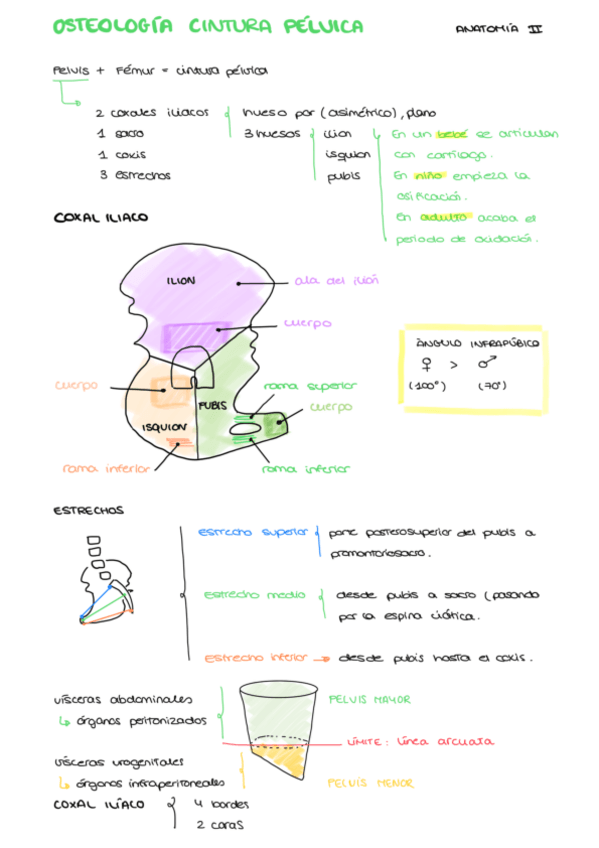 OSTEOLOGÍA CINTURA PÉLVICA
ANATOMÍA II
Pelvis + Fémur = cintura pélvica
2 coxales iliacos
1 sacro
1 coxis
3 estrechos
hueso par (asimétrico), plano
3 huesos
ilion
isquion
pubis
En un bebé se articulan
con cartílago.
En niño empieza la
osificación.
En adulto acaba el
periodo de oxidación.
COXAL ILIACO
ILION
ala del ilión
cuerpo
cuerpo
ISQUION
rama inferior
PUBIS
rama superior
cuerpo
rama inferior
ÁNGULO INFRAPÚBICO
♀ > ♂
(100°) (70°)
ESTRECHOS
estrecho superior
parte posterosuperior del pubis a
promontoriosacro.
estrecho medio
desde pubis a sacro (pasando
por la espina ciática.
estrecho inferior → desde pubis hasta el coxis.
vísceras abdominales
↳ órganos peritonizados
PELVIS MAYOR
LÍMITE: línea arcuata
vísceras urogenitales
↳ órganos infraperitoneales
PELVIS MENOR
COXAL ILÍACO
4 bordes
2 caras